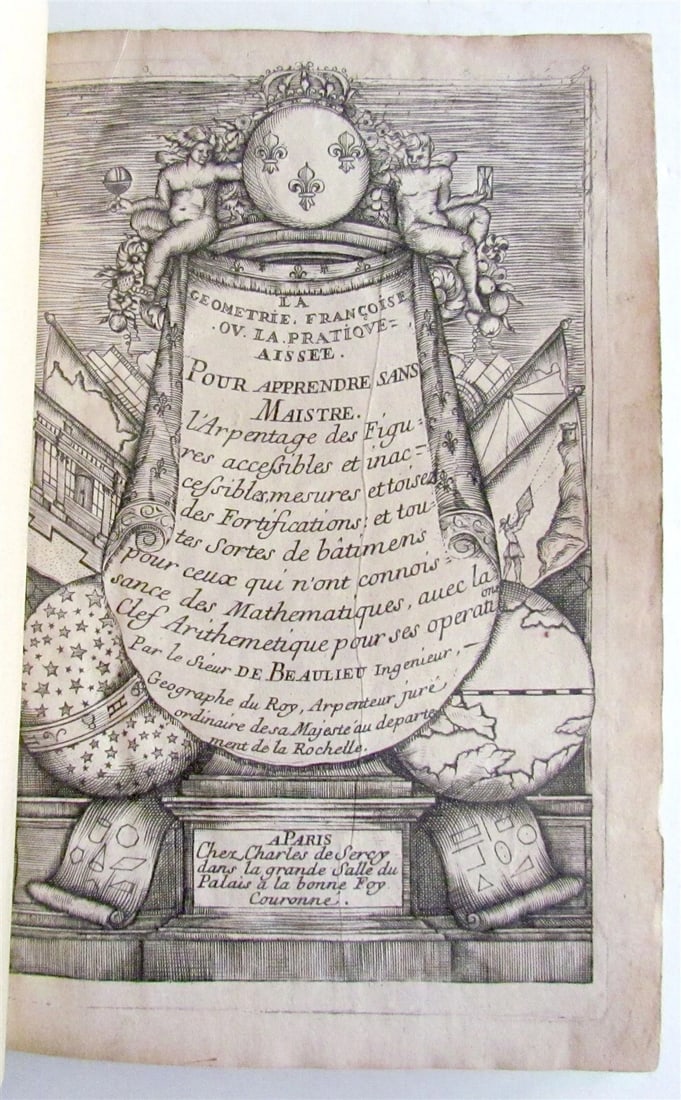 LA
GEOMETRIE, FRANÇOISE
·OV. LA. PRATIQVE=
AISSEE.
POUR APPRENDRE SANS
MAISTRE.
l'Arpentage des Figu-
res accessibles et inac=
cessibles, mesures et toisez
des Fortifications, et tou-
tes Sortes de bâtimens
pour ceux qui n'ont connois=
sance des Mathematiques, auec la
Clef Arithemetique pour ses operati
ons
Par le Sieur DE BEAULIEU Ingenieur,
Geographe du Roy, Arpenteur juré
ordinaire de sa Majesté au departe
ment de la Rochelle.
A PARIS
Chez Charles de Sercy
dans la grande Salle du
Palais à la bonne Foy
Couronne.